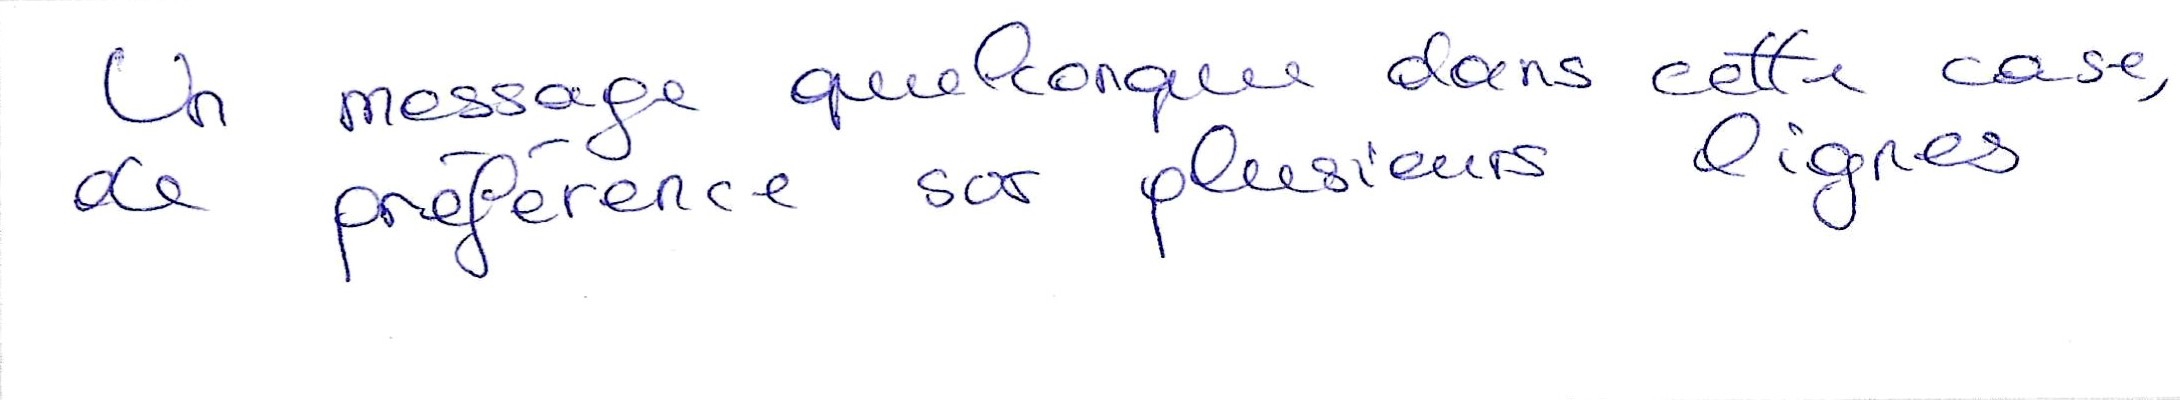 Un message quelconque dans cette case,
de préférence sur plusieurs lignes